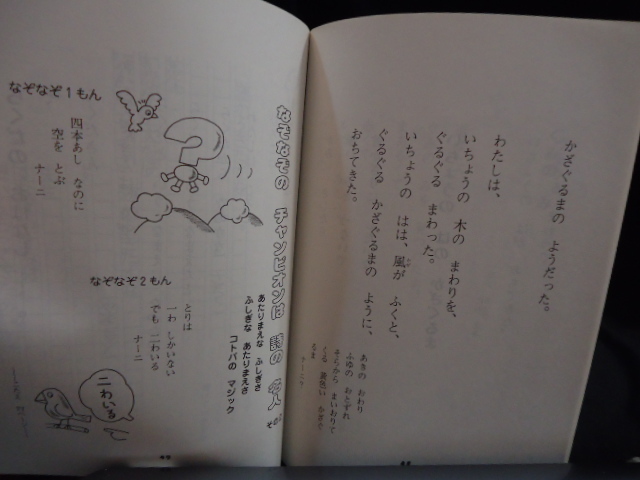 かざぐるまの ようだった。
わたしは、
いちょうの 木の まわりを、
ぐるぐる まわった。
いちょうの はは、風が ふくと、
ぐるぐる かざぐるまの ように、
おちてきた。
あきの おわり
ふゆの おとずれ
そらから まいおりて
くる 黄色い かざぐ
るま
ナーニ
なぞなぞの チャンピオンは 詩の 名人
あたりまえな ふしぎさ
ふしぎな あたりまえさ
コトバの マジック
なぞなぞ1もん
四本あし なのに
空を とぶ
ナーニ
なぞなぞ2もん
とりは
一わ しかいない
でも 二わいる
ナーニ
二わいる